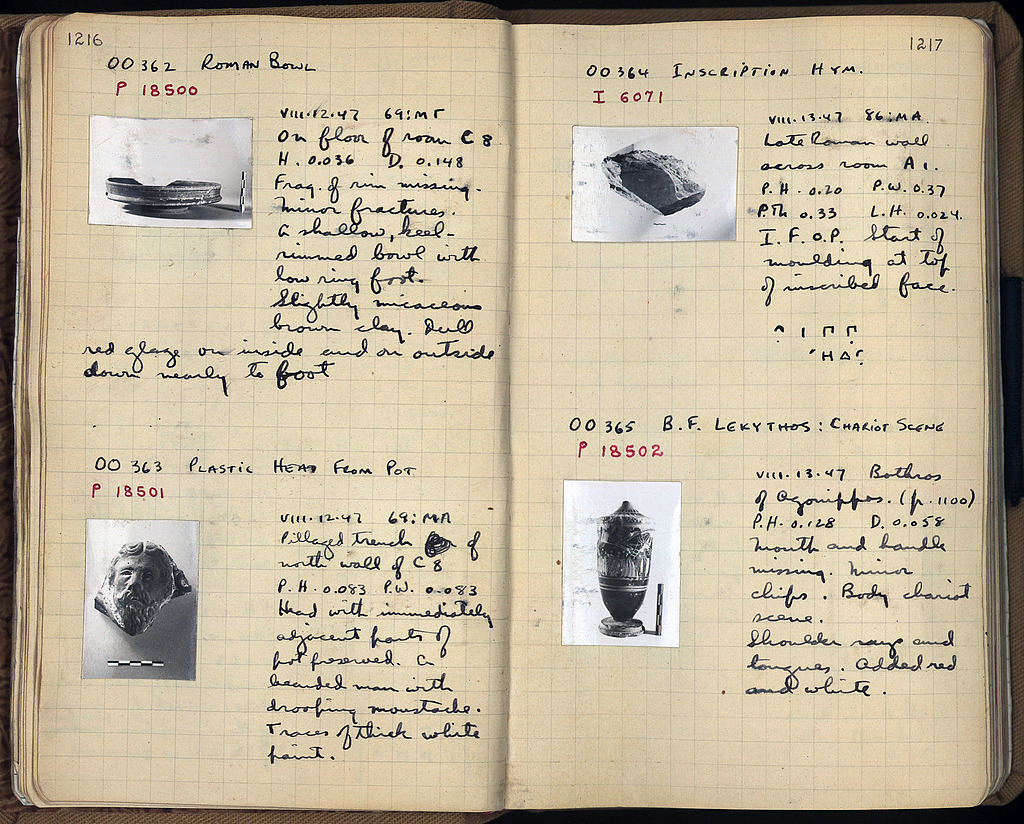 1216
OO 362 ROMAN BOWL
P 18500
VIII·12·47 69:MT
On floor of room C 8
H. 0.036 D. 0.148
Frag. of rim missing.
Minor fractures.
A shallow, keel-
rimmed bowl with
low ring foot.
Slightly micaceous
brown clay. Dull
red glaze on inside and on outside
down nearly to foot
OO 363 PLASTIC HEAD FROM POT
P 18501
VIII·12·47 69:MA
Pillaged trench of
north wall of C 8
P.H. 0.083 P.W. 0.083
Head with immediately
adjacent parts of
pot preserved. A
bearded man with
drooping moustache.
Traces of thick white
paint.
1217
OO 364 INSCRIPTION HYM.
I 6071
VIII·13·47 86:MA.
Late Roman wall
across room A 1.
P.H. 0.20 P.W. 0.37
P.Th 0.33 L.H. 0.024.
I.F.O.P. Start of
moulding at top
of inscribed face.
OO 365 B.F. LEKYTHOS: CHARIOT SCENE
P 18502
VIII·13·47 Bothros
of Agonippos. (p. 1100)
P.H. 0.128 D. 0.058
Mouth and handle
missing. Minor
chips. Body chariot
scene.
Shoulder rays and
tongues. Added red
and white.